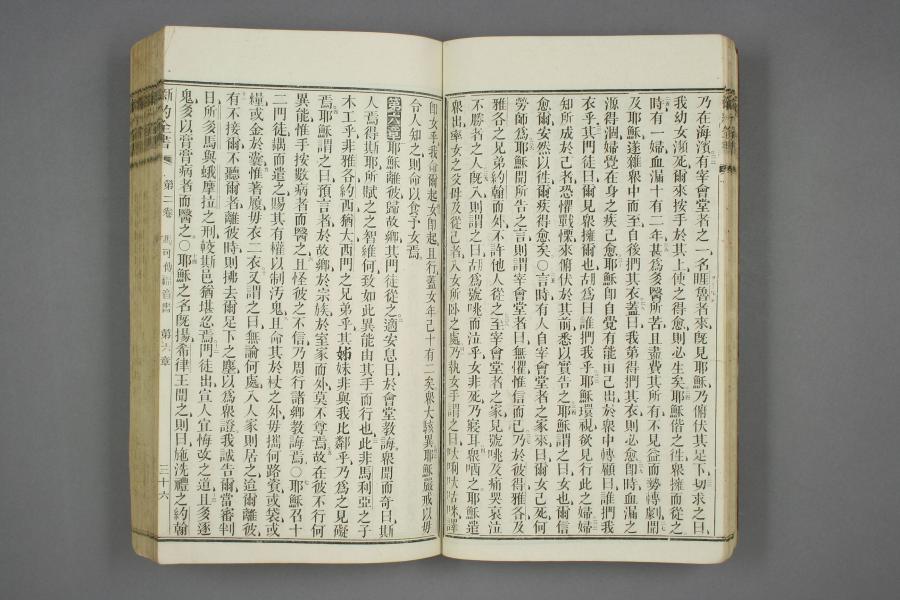 乃在海濱有宰會堂者之一名睚魯者來旣見耶穌乃俯伏其足下切求之曰
我幼女瀕死爾來按手於其上使之得愈則必生矣耶穌偕之徃衆擁而從之
時有一婦血漏十有二年甚爲多醫所苦且盡費其所有不見益而勢轉劇聞
及耶穌遂雜衆中而至自後捫其衣蓋曰我第得捫其衣則必愈卽時血漏之
源得涸婦覺在身之疾已愈耶穌卽自覺有能由己出於衆中轉顧曰誰捫我
衣乎其門徒曰爾見衆擁爾也胡爲曰誰捫我乎耶穌環視欲見行此之婦婦
知所成於己者恐懼戰慄來俯伏於其前悉以實告之耶穌謂之曰女也爾信
愈爾安然以徃爾疾得愈矣〇言時有人自宰會堂者之家來曰爾女已死何
勞師爲耶穌聞所告之言則謂宰會堂者曰無懼惟信而已乃於彼得雅各及
雅各之兄弟約翰而外不許他人從之至宰會堂者之家見號咷及痛哭哀泣
不勝者之人旣入則謂之曰胡爲號咷而泣乎女非死乃寢耳衆哂之耶穌遣
衆出率女之父母及從己者入女所臥之處乃執女手謂之曰呔唎呔咕咪譯
卽女乎我命爾起女卽起且行蓋女年已十有二矣衆大駭異耶穌嚴戒以毋
令人知之則命以食予女焉
第六章耶穌離彼歸故鄉其門徒從之適安息日於會堂敎誨衆聞而奇曰斯
人焉得斯耶所賦之之智維何致如此異能由其手而行也此非馬利亞之子
木工乎非雅各約西猶大西門之兄弟乎其姊妹非與我比鄰乎乃爲之見礙
焉耶穌謂之曰預言者於故鄉於宗族於室家而外莫不尊焉故在彼不行何
異能惟手按數病者而醫之且怪彼之不信乃周行諸鄉敎誨焉〇耶穌召十
二門徒耦而遣之賜其有權以制汚鬼且命其於杖之外毋攜何路資或袋或
糧或金於囊惟著屨毋衣二衣又謂之曰無論何處入人家則居之迨爾離彼
有不接爾不聽爾者離彼時則拂去爾足下之塵以爲衆證我誠吿爾當審判
日所多馬與蛾摩拉之刑較斯邑猶堪忍焉門徒出宣人宜悔改之道且多逐
鬼多以膏膏病者而醫之〇耶穌之名旣揚希律王聞之則曰施洗禮之約翰
新約全書 第二卷 馬可傳福音書 第六章 三十六